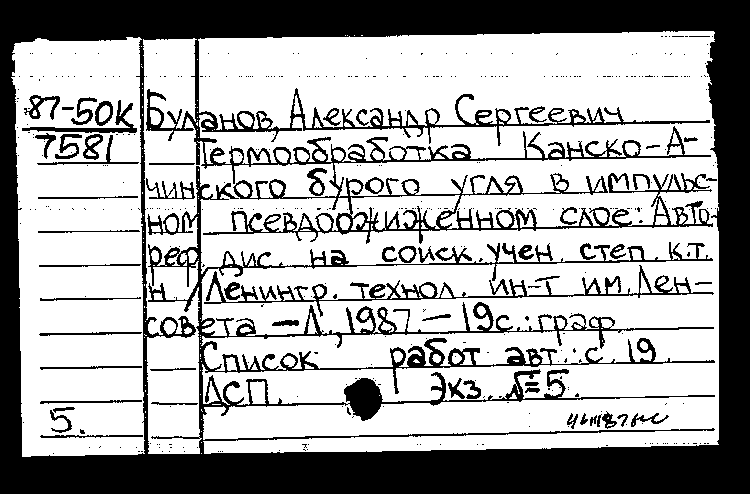 87-50К Буланов, Александр Сергеевич
7581 Термообработка Канско-А-
чинского бурого угля в импульс-
ном псевдоожиженном слое: Авто-
реф. дис. на соиск. учен. степ. к.т.
н. / Ленингр. технол. ин-т им. Лен-
совета. - Л., 1987. - 19с.: граф.
Список работ авт.: с. 19.
ДСП. Экз. №5.
5.